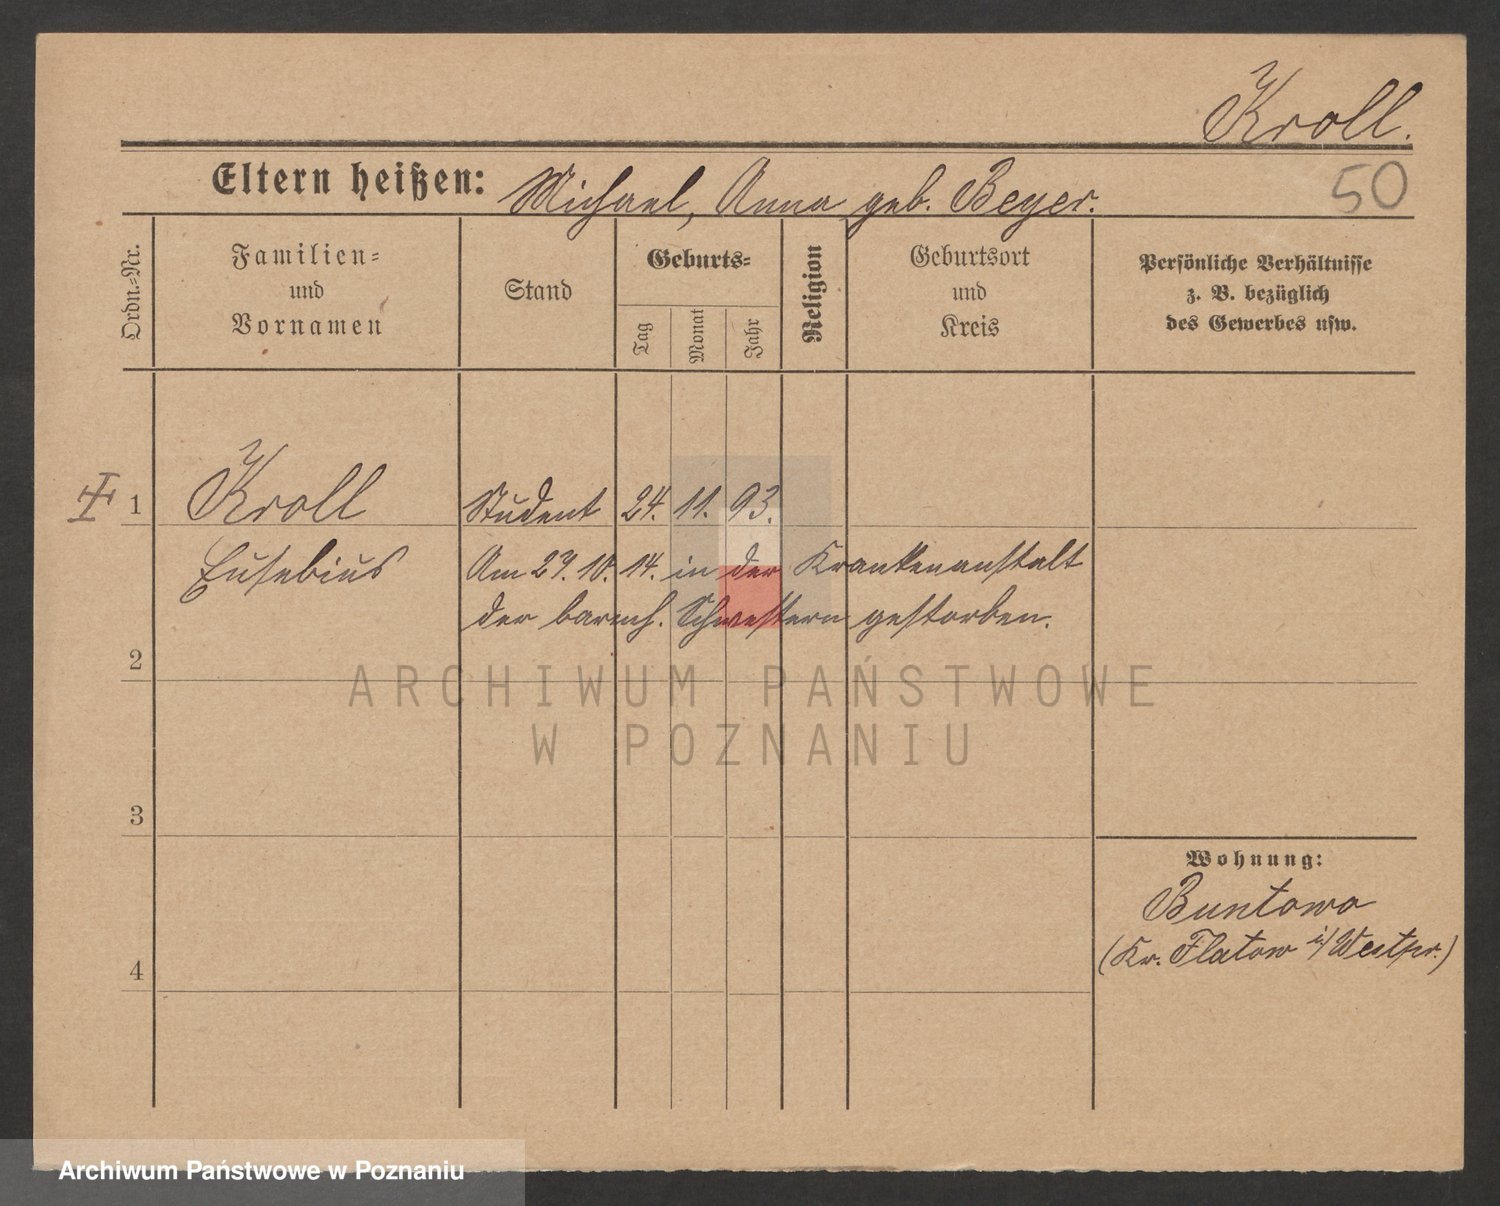 Kroll.
Eltern heißen: Michael, Anna geb. Beyer.
50
Ordn.-Nr.
Familien-
und
Vornamen
Stand
Geburts-
Tag
Monat
Jahr
Religion
Geburtsort
und
Kreis
Persönliche Verhältnisse
z. B. bezüglich
des Gewerbes usw.
1 Kroll Student 24. 11. 93.
Eusebius Am 29. 10. 14. in der Krankenanstalt
der barmh. Schwestern gestorben.
2
ARCHIWUM PAŃSTWOWE
W POZNANIU
3
Wohnung:
Buntowo
(Kr. Flatow i/Westpr.)
4
Archiwum Państwowe w Poznaniu